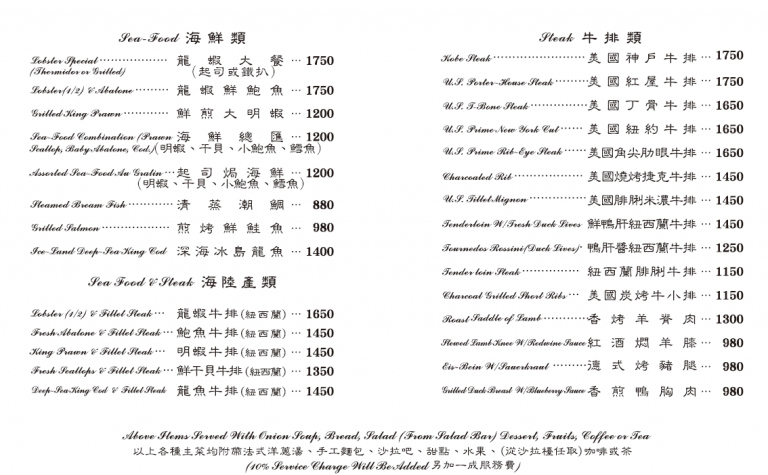 Sea-Food 海鮮類
Lobster Special ··················· 龍蝦大餐 ··· 1750
(Thermidor or Grilled) (起司或鐵扒)
Lobster(1/2) & Abalone ········ 龍蝦鮮鮑魚 ··· 1750
Grilled King Prawn ·············· 鮮煎大明蝦 ··· 1200
Sea-Food Combination (Prawn 海鮮總匯 ··· 1200
Scallop, Baby Abalone, Cod.) (明蝦、干貝、小鮑魚、鱈魚)
Assorted Sea-Food Au Gratin ··· 起司焗海鮮 ··· 1200
(明蝦、干貝、小鮑魚、鱈魚)
Steamed Bream Fish ············ 清蒸潮鯛 ··· 880
Grilled Salmon ··················· 煎烤鮮鮭魚 ··· 980
Ice-Land Deep-Sea-King Cod 深海冰島龍魚 ··· 1400
Sea Food & Steak 海陸產類
Lobster (1/2) & Fillet Steak ··· 龍蝦牛排(紐西蘭) ··· 1650
Fresh Abalone & Fillet Steak ··· 鮑魚牛排(紐西蘭) ··· 1450
King Prawn & Fillet Steak ··· 明蝦牛排(紐西蘭) ··· 1450
Fresh Scallops & Fillet Steak ··· 鮮干貝牛排(紐西蘭) ··· 1350
Deep-Sea-King Cod & Fillet Steak 龍魚牛排(紐西蘭) ··· 1450
Steak 牛排類
Kobe Steak ························ 美國神戶牛排 ··· 1750
U.S. Porter-House Steak ········ 美國紅屋牛排 ··· 1750
U.S. T-Bone Steak ··············· 美國丁骨牛排 ··· 1650
U.S. Prime New York Cut ······· 美國紐約牛排 ··· 1650
U.S. Prime Rib-Eye Steak ······ 美國角尖肋眼牛排 ··· 1650
Charcoaled Rib ··················· 美國燒烤捷克牛排 ··· 1450
U.S. Fillet Mignon ··············· 美國腓脷米濃牛排 ··· 1450
Tenderloin W/Fresh Duck Lives 鮮鴨肝紐西蘭牛排 ··· 1450
Tournedos Rossini (Duck Lives)· 鴨肝醬紐西蘭牛排 ··· 1250
Tender loin Steak ··············· 紐西蘭腓脷牛排 ··· 1150
Charcoal Grilled Short Ribs ··· 美國炭烤牛小排 ··· 1150
Roast Saddle of Lamb ··········· 香烤羊脊肉 ··· 1300
Stewed Lamb Knee W/Redwine Sauce 紅酒燜羊膝 ··· 980
Eis-Bein W/Sauerkraut ········· 德式烤豬腿 ··· 980
Grilled Duck Breast W/Blueberry Sauce 香煎鴨胸肉 ··· 980
Above Items Served With Onion Soup, Bread, Salad (From Salad Bar) Dessert, Fruits, Coffee or Tea
以上各種主菜均附蘭法式洋蔥湯、手工麵包、沙拉吧、甜點、水果、(從沙拉檯任取)咖啡或茶
(10% Service Charge Will Be Added 另加一成服務費)